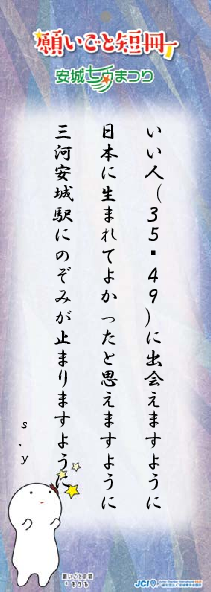 願いごと短冊
安城七夕まつり
いい人（３５〜４９）に出会えますように
日本に生まれてよかったと思えますように
三河安城駅にのぞみが止まりますように
s.y
JCI